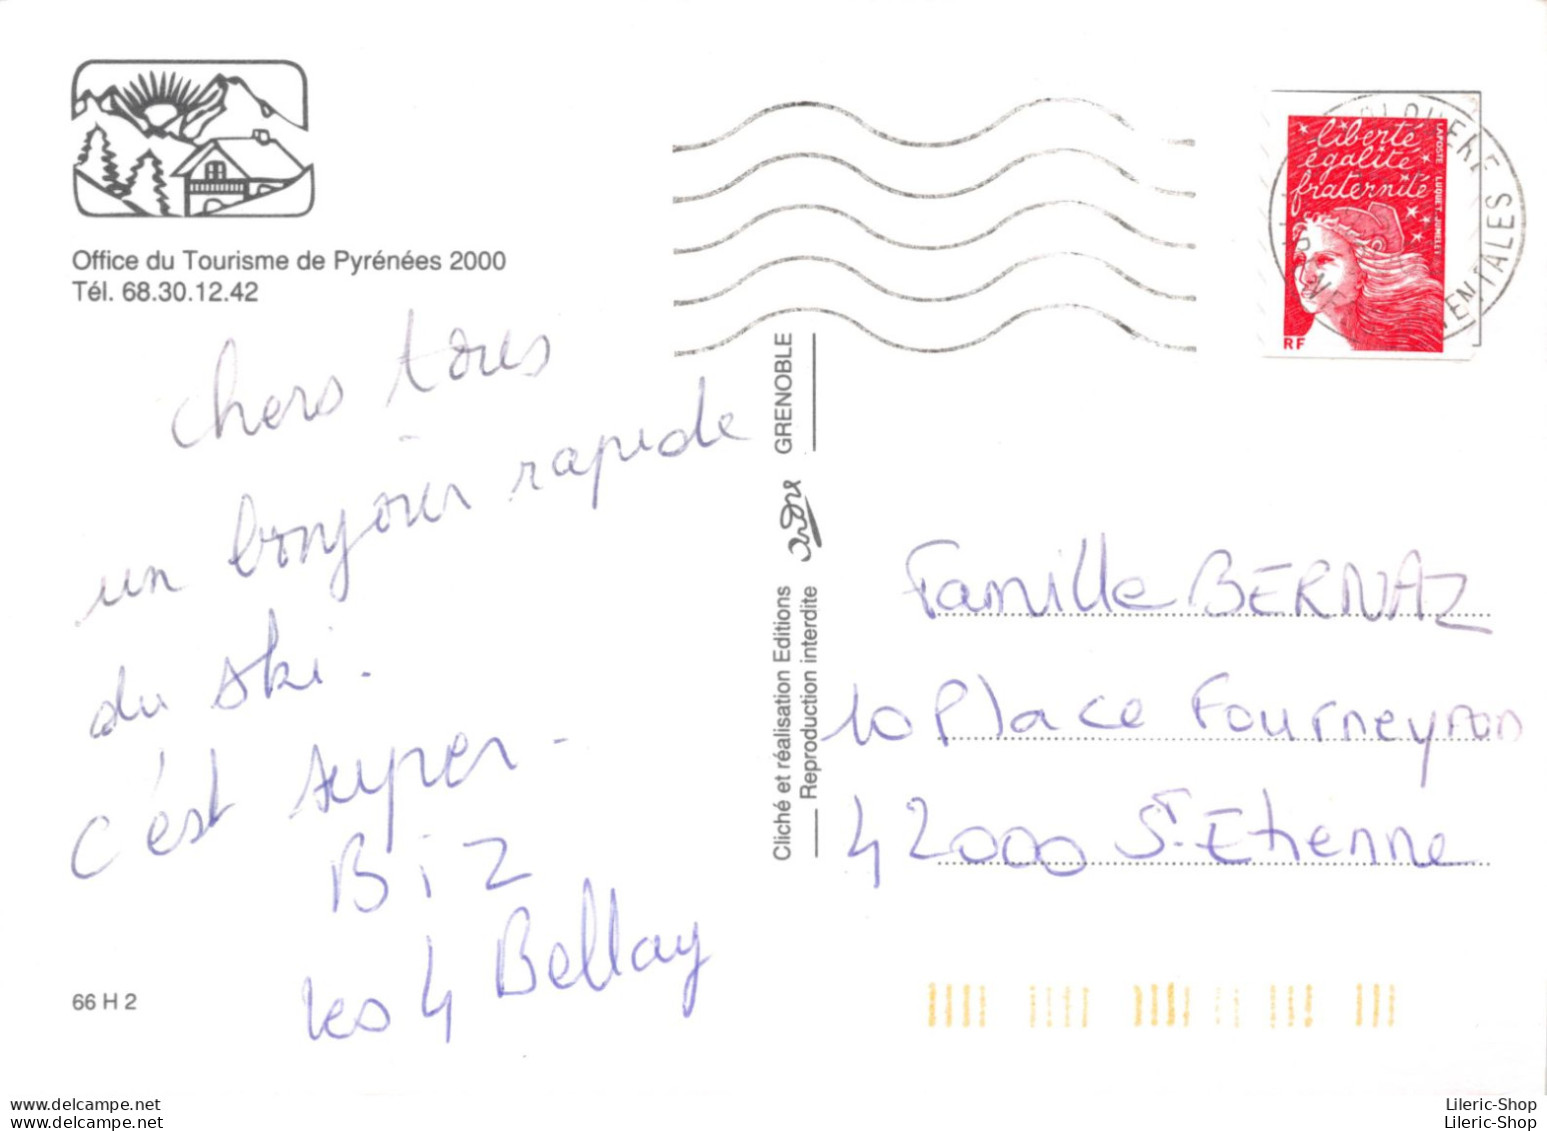 Office du Tourisme de Pyrénées 2000
Tél. 68.30.12.42
chers tous
un bonjour rapide
du ski.
c'est super -
Biz
les 4 Bellay
66 H 2
GRENOBLE
Cliché et réalisation Editions
Reproduction interdite
liberté
égalité
fraternité
LA POSTE
LUQUET
RF
ENTALES
Famille BERNAZ
10 Place Fourneyron
42000 St. Etienne
www.delcampe.net
ouire.com
Lileric-Shop
Lileric-Shop